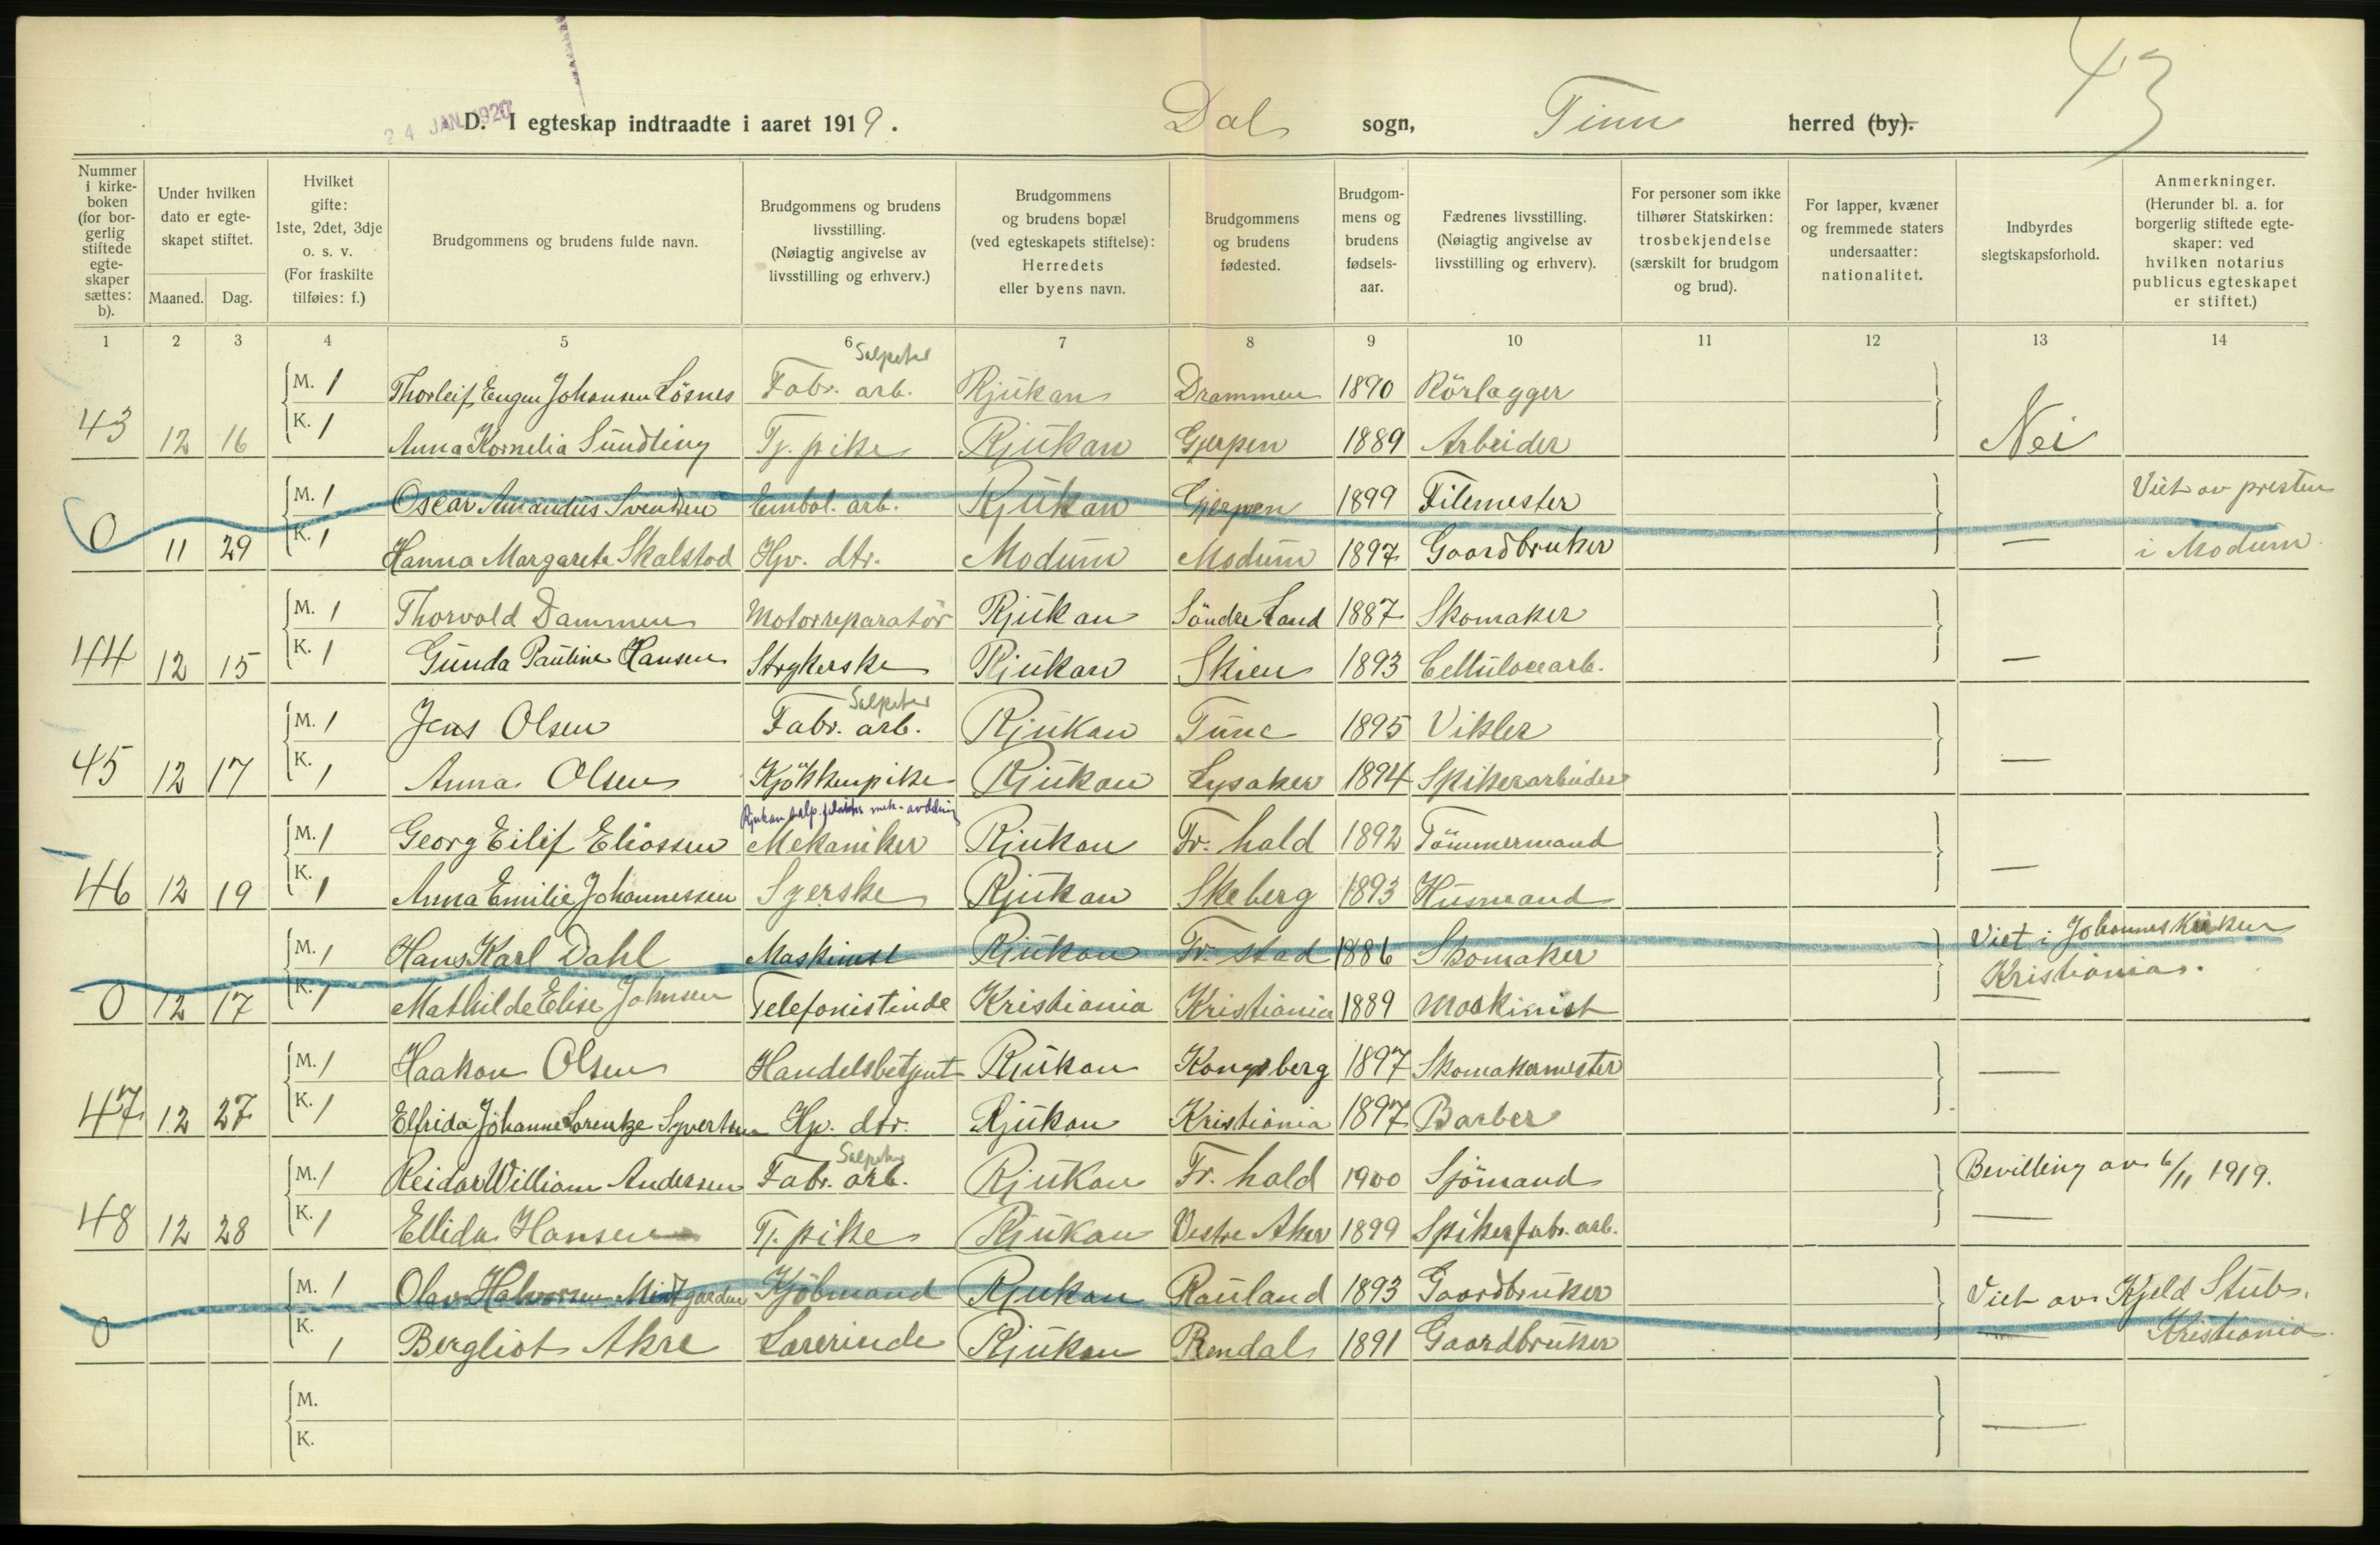 43
24 JAN. 1920
D. I egteskap indtraadte i aaret 1919. Dal sogn, Tinn herred (by).
Nummer i kirke-boken (for bor-gerlig stiftede egte-skaper sættes: b).
Under hvilken dato er egte-skapet stiftet.
Maaned. Dag.
Hvilket gifte: 1ste, 2det, 3dje o. s. v. (For fraskilte tilføies: f.)
Brudgommens og brudens fulde navn.
Brudgommens og brudens livsstilling. (Nøiagtig angivelse av livsstilling og erhverv.)
Brudgommens og brudens bopæl (ved egteskapets stiftelse): Herredets eller byens navn.
Brudgommens og brudens fødested.
Brudgom-mens og brudens fødsels-aar.
Fædrenes livsstilling. (Nøiagtig angivelse av livsstilling og erhverv).
For personer som ikke tilhører Statskirken: trosbekjendelse (særskilt for brudgom og brud).
For lapper, kvæner og fremmede staters undersaatter: nationalitet.
Indbyrdes slegtskapsforhold.
Anmerkninger. (Herunder bl. a. for borgerlig stiftede egte-skaper: ved hvilken notarius publicus egteskapet er stiftet.)
1 2 3 4 5 6 7 8 9 10 11 12 13 14
Salpeter
M. 1 Thorleif Eugen Johansen Lösnes Fabr. arb. Rjukan Drammen 1890 Rörlagger
43 12 16 K. 1 Anna Kornelia Sundling Tj. pike Rjukan Gjerpen 1889 Arbeider Nei
M. 1 Oscar Amandus Svendsen Embal. arb. Rjukan Gjerpen 1899 Filemester Viet av presten
0 11 29 K. 1 Hanna Margarete Skalstad Hjv. dtr. Modum Modum 1897 Gaardbruker — i Modum
M. 1 Thorvald Dammen Motorreparatör Rjukan Söndre Land 1887 Skomaker
44 12 15 K. 1 Gunda Pauline Hansen Strykerske Rjukan Skien 1893 Cellulosearb. —
Salpeter
M. 1 Jens Olsen Fabr. arb. Rjukan Tune 1895 Vikler
45 12 17 K. 1 Anna Olsen Kjökkenpike Rjukan Lysaker 1894 Spikerarbeider —
Rjukan salp. fabrikker mek. avdeling
M. 1 Georg Eilif Eliassen Mekaniker Rjukan Fr. hald 1892 Tömmermand
46 12 19 K. 1 Anna Emilie Johannessen Syerske Rjukan Skeberg 1893 Husmand —
M. 1 Hans Karl Dahl Maskinist Rjukan Fr. stad 1886 Skomaker Viet i Johannes Kirken
0 12 17 K. 1 Mathilde Elise Johnsen Telefonistinde Kristiania Kristiania 1889 Maskinist Kristiania.
M. 1 Haakon Olsen Handelsbetjent Rjukan Kongsberg 1897 Skomakermester —
47 12 27 K. 1 Elfrida Johanne Lorentze Syvertsen Hjv. dtr. Rjukan Kristiania 1897 Barber
Salpeter
M. 1 Reidar William Andersen Fabr. arb. Rjukan Fr. hald 1900 Sjömand Bevilling av 6/11 1919.
48 12 28 K. 1 Ellida Hansen Tj. pike Rjukan Vestre Aker 1899 Spikerfabr. arb. —
M. 1 Olav Halvorsen Midtgarden Kjöbmand Rjukan Rauland 1893 Gaardbruker Viet av Kjeld Stub.
0 K. 1 Bergliot Akre Lærerinde Rjukan Rendal 1891 Gaardbruker — Kristiania.
M.
K. —